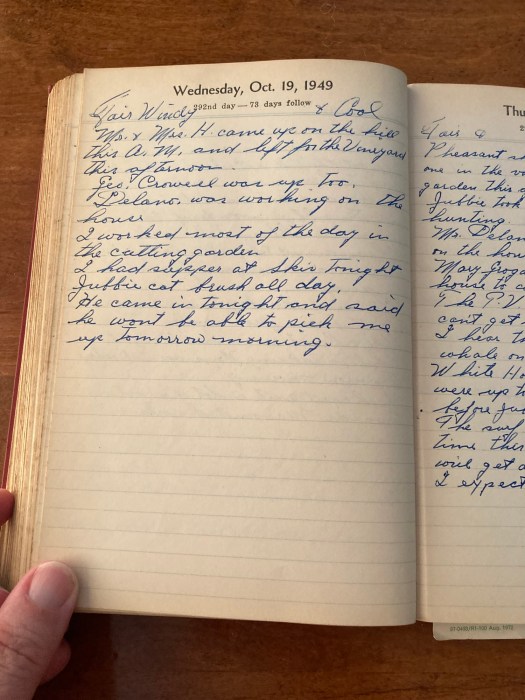 Wednesday, Oct. 19, 1949
292nd day — 73 days follow
Fair Windy & Cool
Mr. & Mrs. H. came up on the hill
this A.M. and left for the Vineyard
this afternoon.
Geo. Crowell was up too.
Delano. was working on the
house
I worked most of the day in
the cutting garden
I had supper at Skir tonight
Jubbie cut brush all day.
He came in tonight and said
he wont be able to pick me
up tomorrow morning.
Thu
2
Fair &
Pheasant s
one in the ve
garden this
Jubbie took
hunting.
Mr. Delan
on the hou
May Grog
house to c
The P.V
cant get
I hear th
whale on
White Ho
were up t
before Ju
The surf
time ther
will get a
I expect